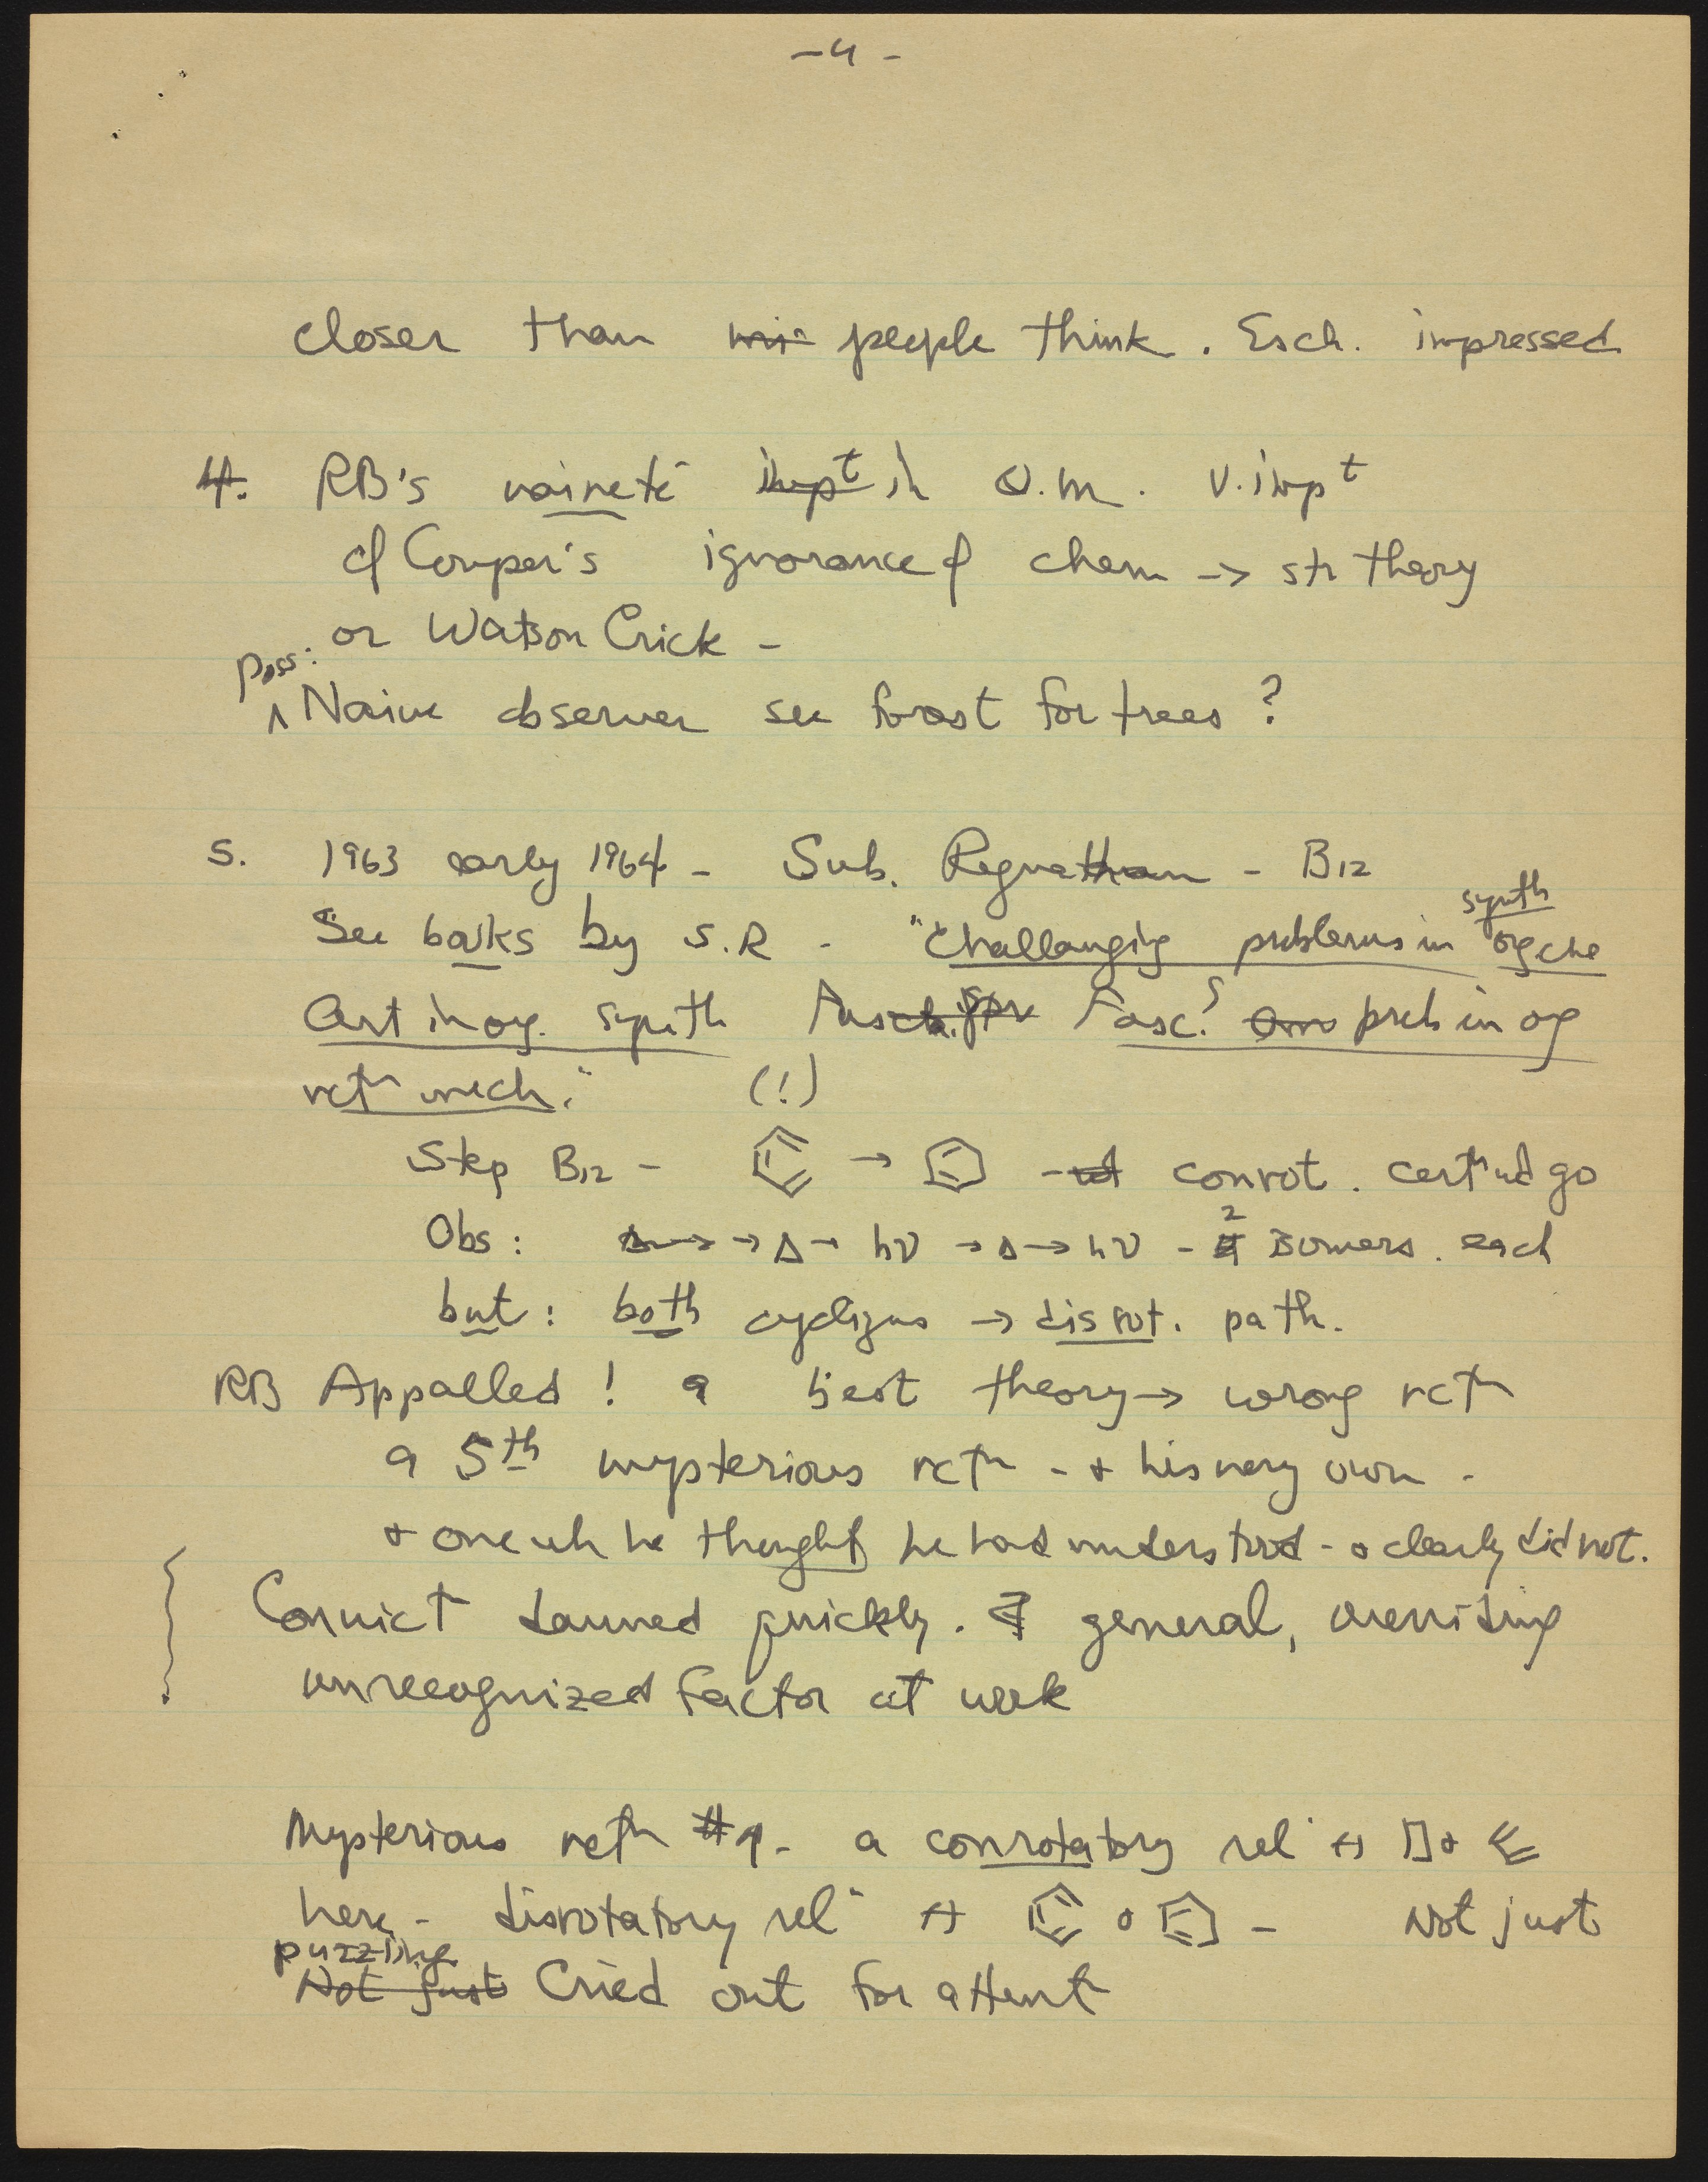 -4-
closer than people think. Esch. impressed
4. RB's naiveté impt in Q.M. v. impt
cf Couper's ignorance of chem → str theory
or Watson Crick -
poss:
Naive observer see forest for trees?
5. 1963 early 1964 - Sub. Regnathan - B12
synth
See books by S.R - "Challenging problems in og che
Art in og. synth Fasc. prob in og
rctn mech." (!)
Step B12 - → - conrot. certn
go
Obs: → Δ → hν → Δ → hν - 2 isomers. each
but: both cyclizns → disrot. path.
RB Appalled! a best theory → wrong rctn
a 5th mysterious rctn - + his very own -
+ one wh he thought he had understood - + clearly did not.
Convict dawned quickly. ∃ general, overriding
unrecognized factor at work
Mysterious rctn #4 - a conrotatory reln ↔ +
here - disrotatory reln ↔ + - Not just
puzzling
Not just Cried out for attentn